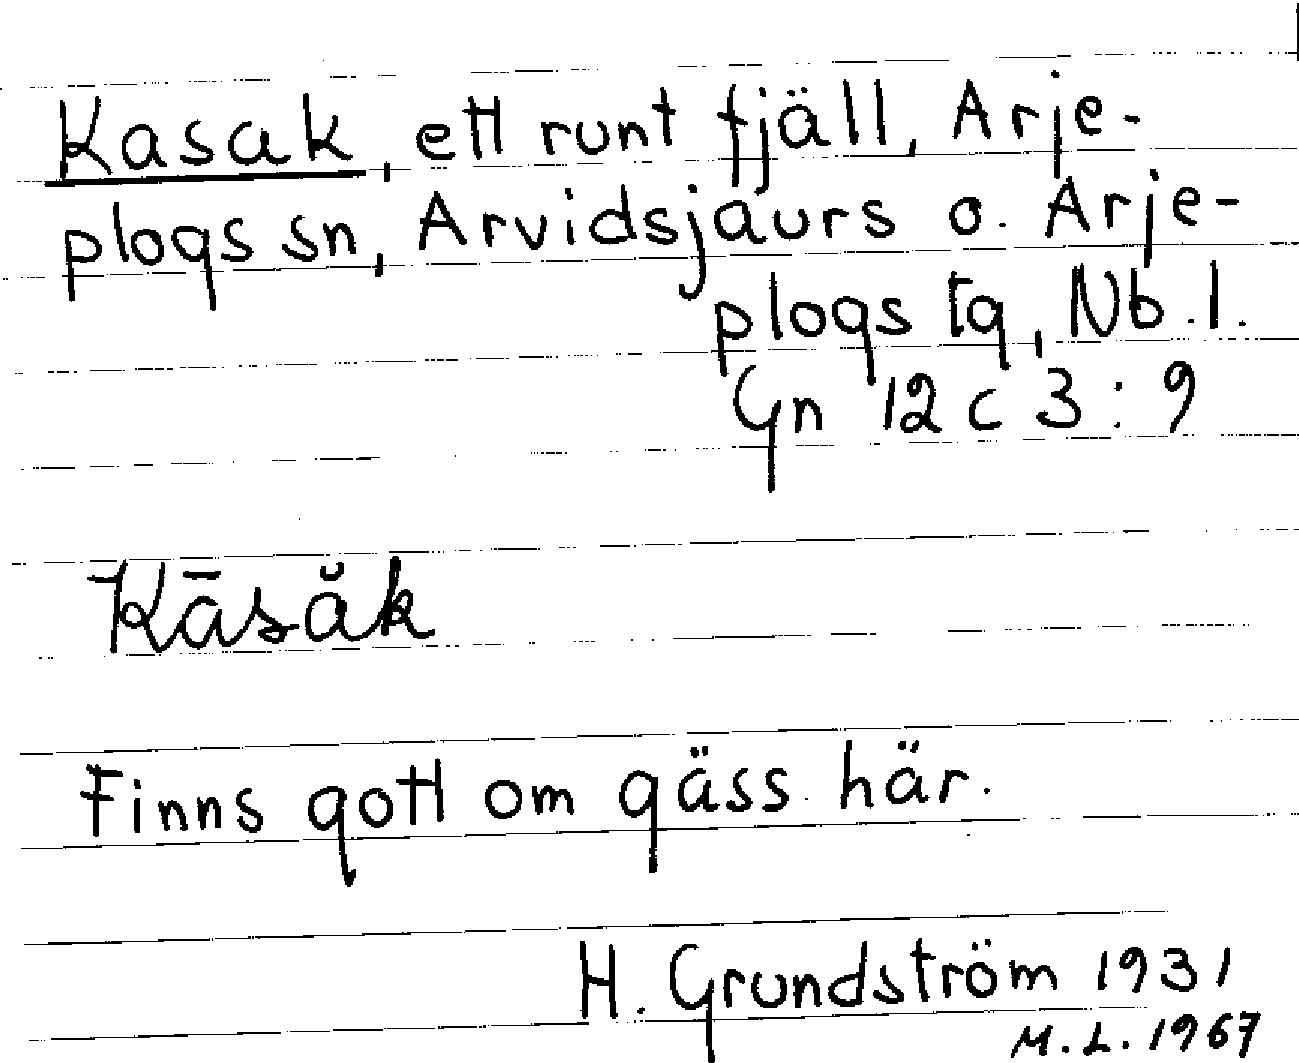 Kasak, ett runt fjäll, Arje-
plogs sn, Arvidsjaurs o. Arje-
plogs tg, Nb. l.
Gn 12 c 3 : 9
Kāsăk
Finns gott om gäss här.
H. Grundström 1931
M. L. 1967